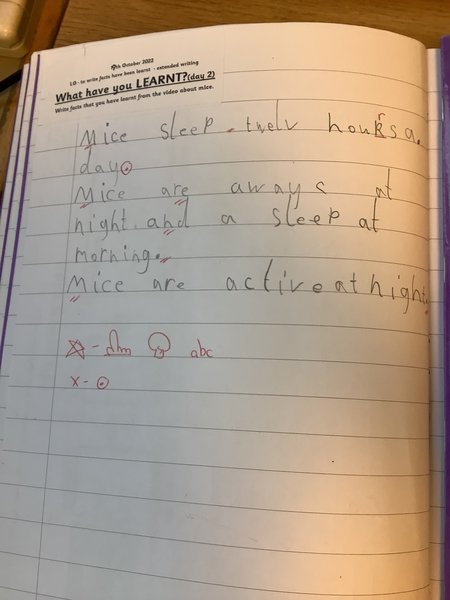 19th October 2022
LO - to write facts have been learnt - extended writing
What have you LEARNT?(day 2)
Write facts that you have learnt from the video about mice.
Mice sleep. twelv hours a.
day.
Mice are aways at
night. and a sleep at
morning.
Mice are active at night.
abc
x -